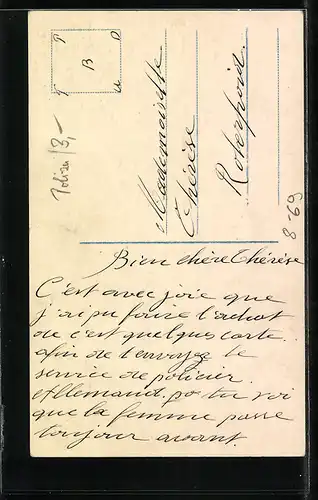 P P
B
Polizei /3,-
Mademoiselle
Thérèse
8-69
Bien chère Thérèse
C'est avec joie que
j'ai pu faire l'achat
de c'est quelques carte.
afin de t'envoyez le
service de policier
Allemand. po tu voi
que la femme passe
toujour avant.